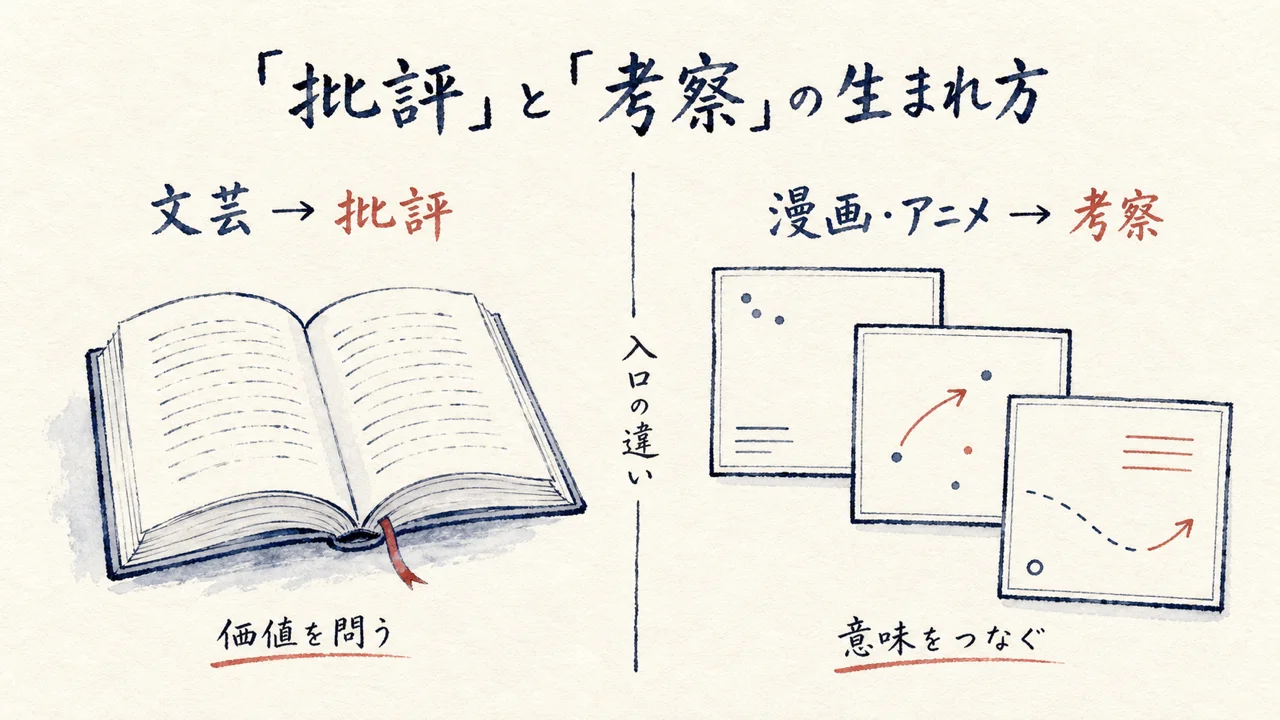 「批評」と「考察」の生まれ方
文芸→批評
価値を問う
入口の違い
漫画・アニメ→考察
意味をつなぐ